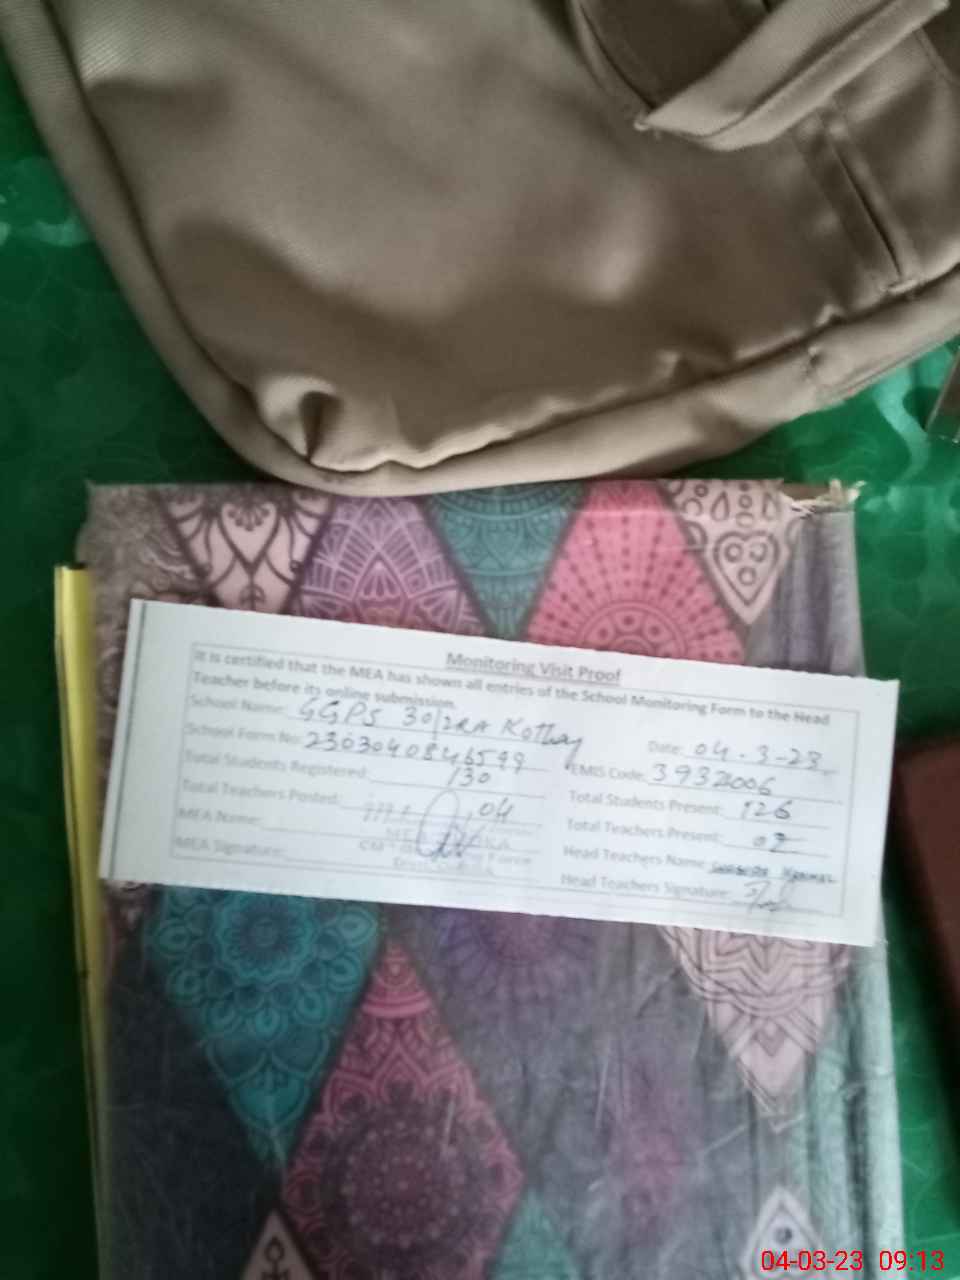 Monitoring Visit Proof
It is certified that the MEA has shown all entries of the School Monitoring Form to the Head
Teacher before its online submission.
School Name: GGPS 30/2RA Kothay
Date: 04-3-23
School Form No: 2303040846599
EMIS Code: 39321006
Total Students Registered: 130
Total Students Present: 126
Total Teachers Posted: 04
Total Teachers Present: 02
MEA Name:
Head Teachers Name:
MEA Signature:
Head Teachers Signature:
04-03-23 09:13